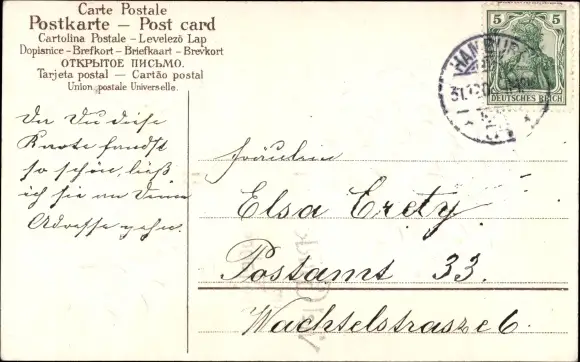 Carte Postale
Postkarte – Post card
Cartolina Postale - Levelező Lap
Dopisnice - Brefkort - Briefkaart - Brevkort
ОТКРЫТОЕ ПИСЬМО.
Tarjeta postal — Cartão postal
Union postale Universelle.
5 5
DEUTSCHES REICH
HAMBURG
31.12.0
Da Du diese
Karte fandst
so schön, ließ
ich sie an Deine
Adresse gehn.
Fräulein
Elsa Crety.
Postamt 33.
Wachtelstrasze 6.